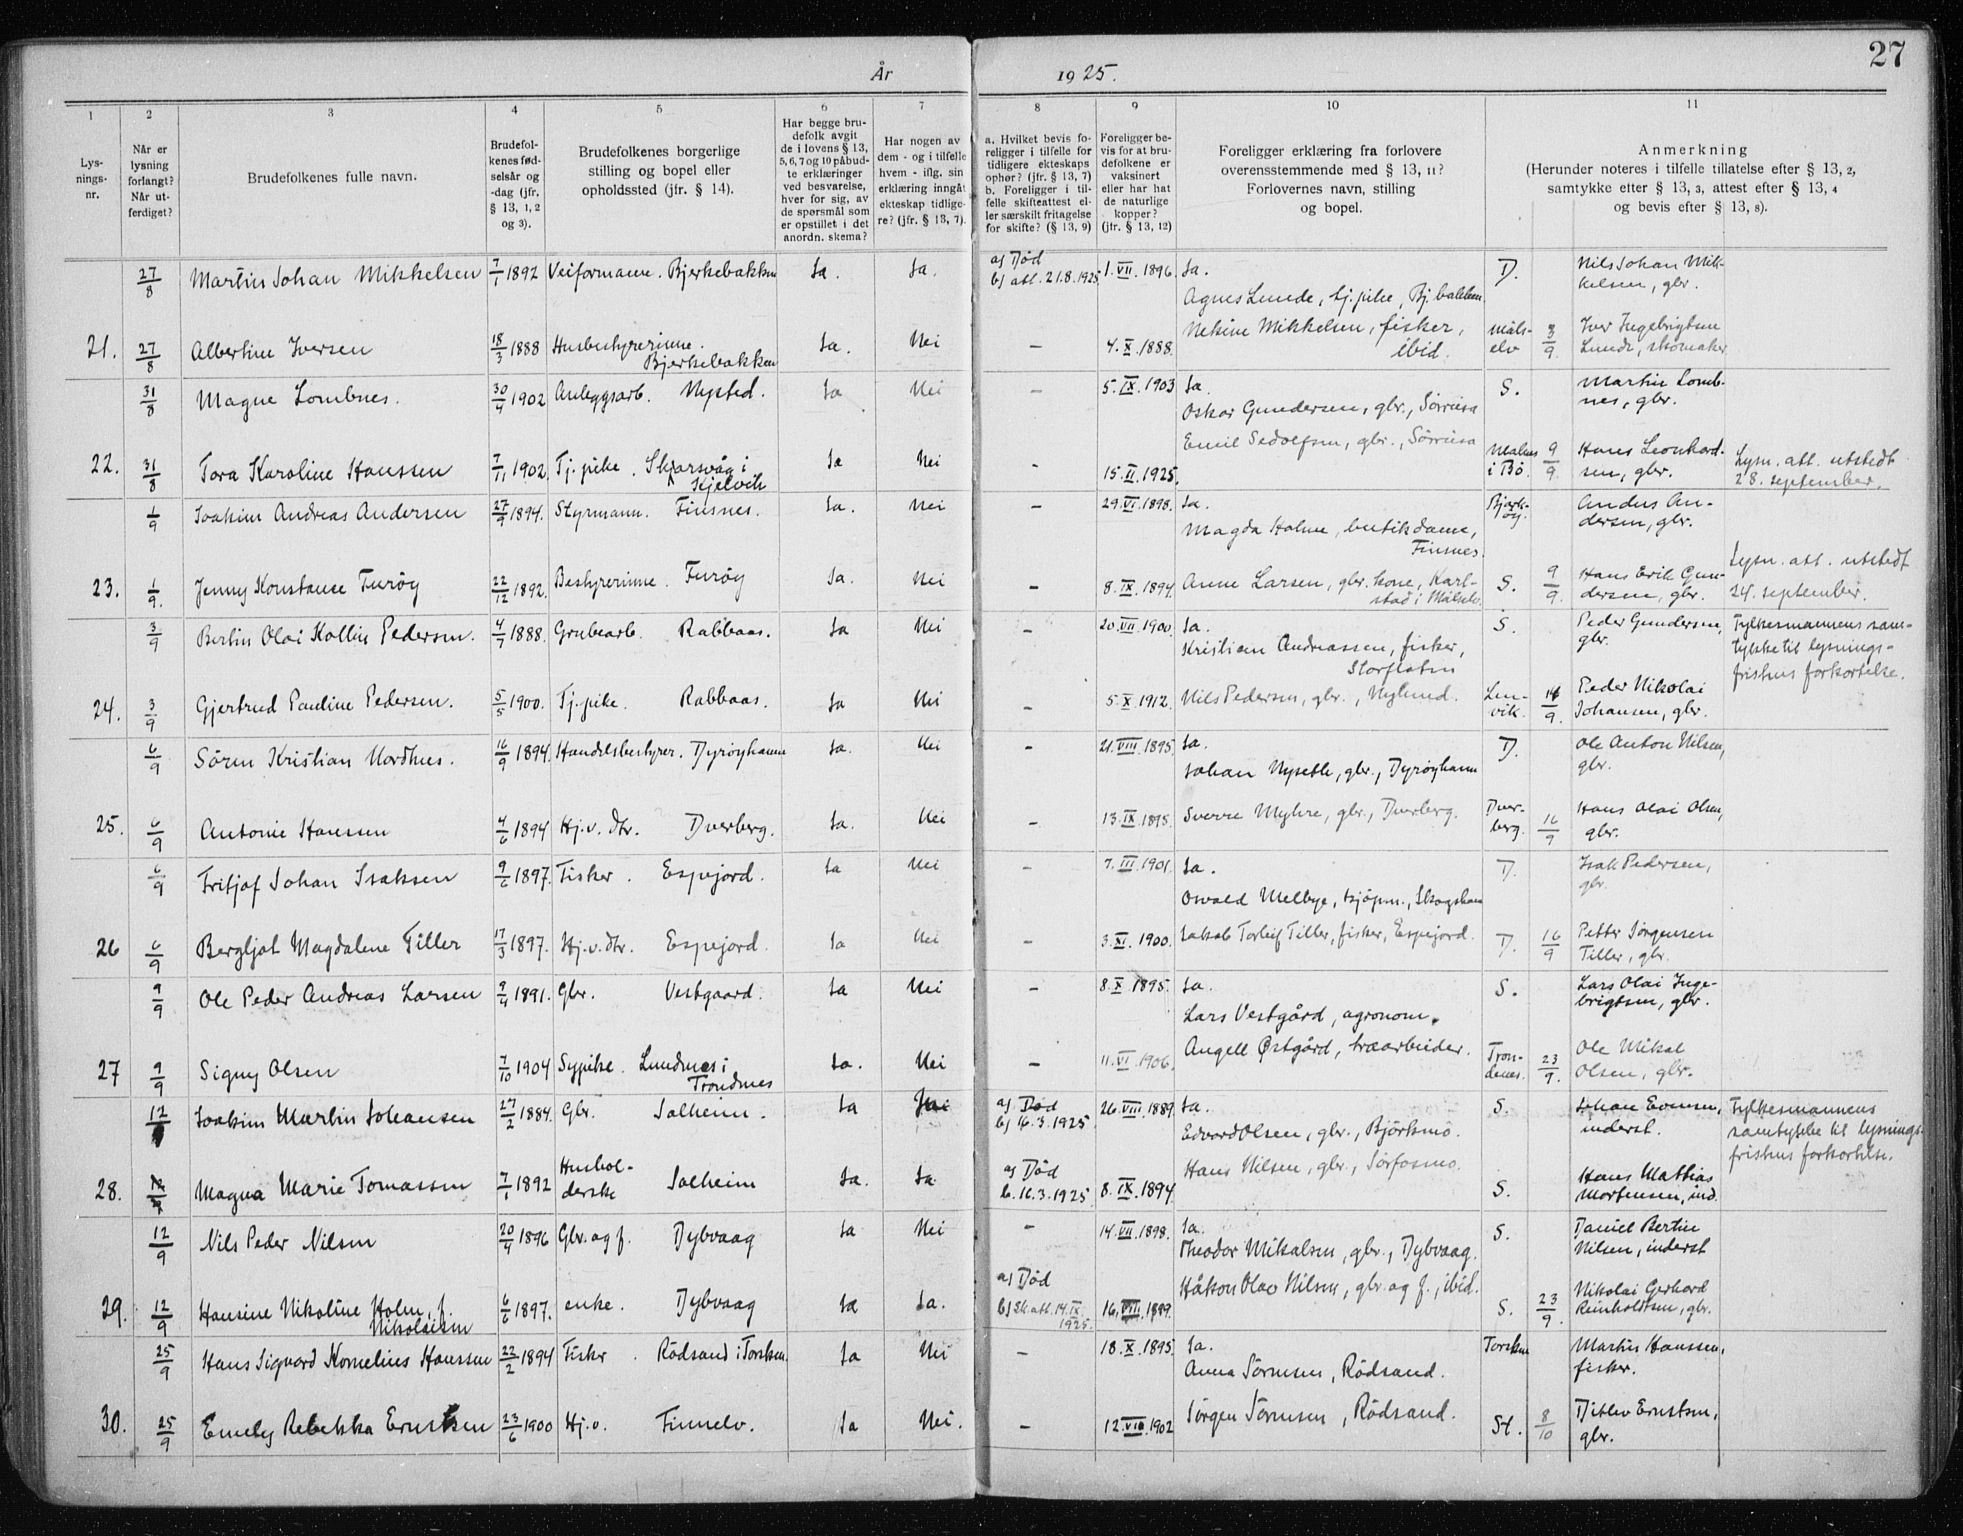 27
År 1925.
1 2 3 4 5 6 7 8 9 10 11
Lys-
nings-
nr.
Når er
lysning
forlangt?
Når ut-
ferdiget?
Brudefolkenes fulle navn.
Brudefol-
kenes fød-
selsår og
-dag (jfr.
§ 13, 1, 2
og 3).
Brudefolkenes borgerlige
stilling og bopel eller
opholdssted (jfr. § 14).
Har begge bru-
defolk avgit
de i lovens § 13,
5, 6, 7 og 10 påbud-
te erklæringer
ved besvarelse,
hver for sig, av
de spørsmål som
er opstillet i det
anordn. skema?
Har nogen av
dem - og i tilfelle
hvem - iflg. sin
erklæring inngåt
ekteskap tidlige-
re? (jfr. § 13, 7).
a. Hvilket bevis fo-
religger i tilfelle for
tidligere ekteskaps
ophør? (jfr. § 13, 7)
b. Foreligger i til-
felle skifteattest el-
ler særskilt fritagelse
for skifte? (§ 13, 9)
Foreligger be-
vis for at bru-
defolkene er
vaksinert
eller har hat
de naturlige
kopper?
(jfr. § 13, 12)
Foreligger erklæring fra forlovere
overensstemmende med § 13, 11?
Forlovernes navn, stilling
og bopel.
Anmerkning
(Herunder noteres i tilfelle tillatelse efter § 13, 2,
samtykke etter § 13, 3, attest efter § 13, 4
og bevis efter § 13, 8).
27/8 Martin Johan Mikkelsen 7/1 1892 Veiformann. Bjerkebakken Ja. Ja. a) Død b) att. 21.8.1925 1.VII.1896. Ja. D. Nils Johan Mik-
kelsen, gbr.
Agnes Lunde, tj.pike, Bj.bakken.
21. 27/8 Albertine Iversen 18/3 1888 Husbestyrerinne. Bjerkebakken Ja. Nei – 4.X.1888. Nekine Mikkelsen, fisker, ibid. Måls-
elv 3/9 Iver Ingebrigtsen
Lunde, skomaker
31/8 Magne Lombnes. 30/4 1902 Anleggsarb. Nysted. Ja Nei – 5.IX.1903 Ja. S. Martin Lomb-
nes, gbr.
Oskar Gundersen, gbr., Sørreisa
22. 31/8 Tora Karoline Hanssen 7/11 1902. Tj.pike. Skarsvåg i Kjelvik Ja Nei – 15.II.1925. Emil Sedolfsen, gbr., Sørreisa Malnes
i Bø. 9/9 Hans Leonhard-
sen, gbr. Lysn. att. utstedt
28. september.
1/9 Joakim Andreas Andersen 27/9 1894. Styrmann. Finsnes. Ja. Nei – 29.VI.1898. Ja. Bjark-
øy. Anders An-
dersen, gbr.
Magda Holme, butikdame, Finsnes.
23. 1/9. Jenny Konstance Furøy 22/12 1892. Bestyrerinne. Furøy Ja. Nei – 8.IX.1894. Anne Larsen, gbr. kone, Karl-
stad i Målselv. S. 9/9. Hans Erik Gun-
dersen, gbr. Lysn. att. utstedt
24. september.
3/9 Bertin Olai Kollin Pedersen. 4/7 1888. Grubearb. Rabbaas. Ja Nei – 20.VII.1900. Ja. S. Peder Gundersen,
gbr. Fylkesmannens sam-
tykke til lysnings-
fristens forkortelse.
Kristian Andreassen, fisker,
Storfloten
24. 3/9 Gjertrud Pauline Pedersen. 5/5 1900. Tj.pike. Rabbaas. Ja Nei – 5.X.1912. Nils Pedersen, gbr., Nylund. Len-
vik. 14/9. Peder Nikolai
Johansen, gbr.
6/9 Søren Kristian Nordhus. 16/9 1894. Handelsbestyrer. Dyrøyhamn Ja. Nei – 21.VIII.1895. Ja. D. Ole Anton Nilsen,
gbr.
Johan Nyseth, gbr., Dyrøyhamn
25. 6/9 Antonie Hanssen 4/6 1894 Hj.v. dtr. Dverberg. Ja. Nei – 13.IX.1895. Sverre Myhre, gbr., Dverberg. Dver-
berg. 16/9 Hans Olai Olsen,
gbr.
6/9 Fritjof Johan Isaksen 9/6 1897. Fisker. Espejord. Ja Nei – 7.III.1901. Ja. D. Isak Pedersen,
gbr.
Osvald Melbye, kjøpm., Skogshamn
26 6/9 Bergljot Magdalene Tiller 17/3 1897. Hj.v.dtr. Espejord. Ja Nei – 3.XI.1900. Jakob Torleif Tiller, fisker, Espejord. D. 16/9 Petter Jørgensen
Tiller, gbr.
9/9 Ole Peder Andreas Larsen 9/4 1891. Gbr. Vestgaard. Ja Nei – 8.X.1895. Ja. S. Lars Olai Inge-
brigtsen, gbr.
Lars Vestgård, agronom.
27 9/9 Signy Olsen 7/10 1904 Sypike. Lundnes i Trondnes Ja. Nei – 11.VI.1906. Angell Østgård, træarbeider. Tron-
denes. 23/9. Ole Mikal
Olsen, gbr.
12/ Joakim Martin Johansen 27/2 1884. Gbr. Solheim. Ja Nei a) Død b) 16.3.1925 26.VIII.1889. Ja. S. Johan Evensen,
inderst. Fylkesmannens
samtykke til lysnings-
fristens forkortelse.
Edvard Olsen, gbr., Bjørkmo.
28. Magna Marie Tomassen 7/1 1892 Hushol-
derske Solheim Ja. Ja a) Død b. 16.3.1925 8.IX.1894. Hans Nilsen, gbr., Sørfosmo. S. Hans Mattias
Mortensen, ind.
12/9 Nils Peder Nilsen 20/4 1896 Gbr. og f. Dybvaag Ja Nei – 14.VII.1898. Ja. S. Daniel Bertin
Nilsen, inderst
Theodor Mikalsen, gbr., Dybvaag.
29. 12/9 Hansine Nikoline Holm, f. Nikolaisen 6/6 1897. enke. Dybvaag Ja Ja. a) Død b) Sk.att. 14.IX 1925. 16.VIII.1899. Håkon Olav Nilsen, gbr. og f., ibid. S. 23/9. Nikolai Gerhard
Reinholdtsen, gbr.
25/9 Hans Sigvard Kornelius Hanssen 22/2 1894 Fisker. Rødsand i Torsken. Ja Nei – 18.X.1895. Ja. Torsken Martin Hanssen,
fisker.
Anna Sørensen, Rødsand.
30. 25/9 Emely Rebekka Ernstsen 23/6 1900 Hj.v. Finnelv. Ja Nei. – 12.VIII.1902 Jørgen Sørensen, Rødsand. St. 8/10 Ditlev Ernstsen,
gbr.